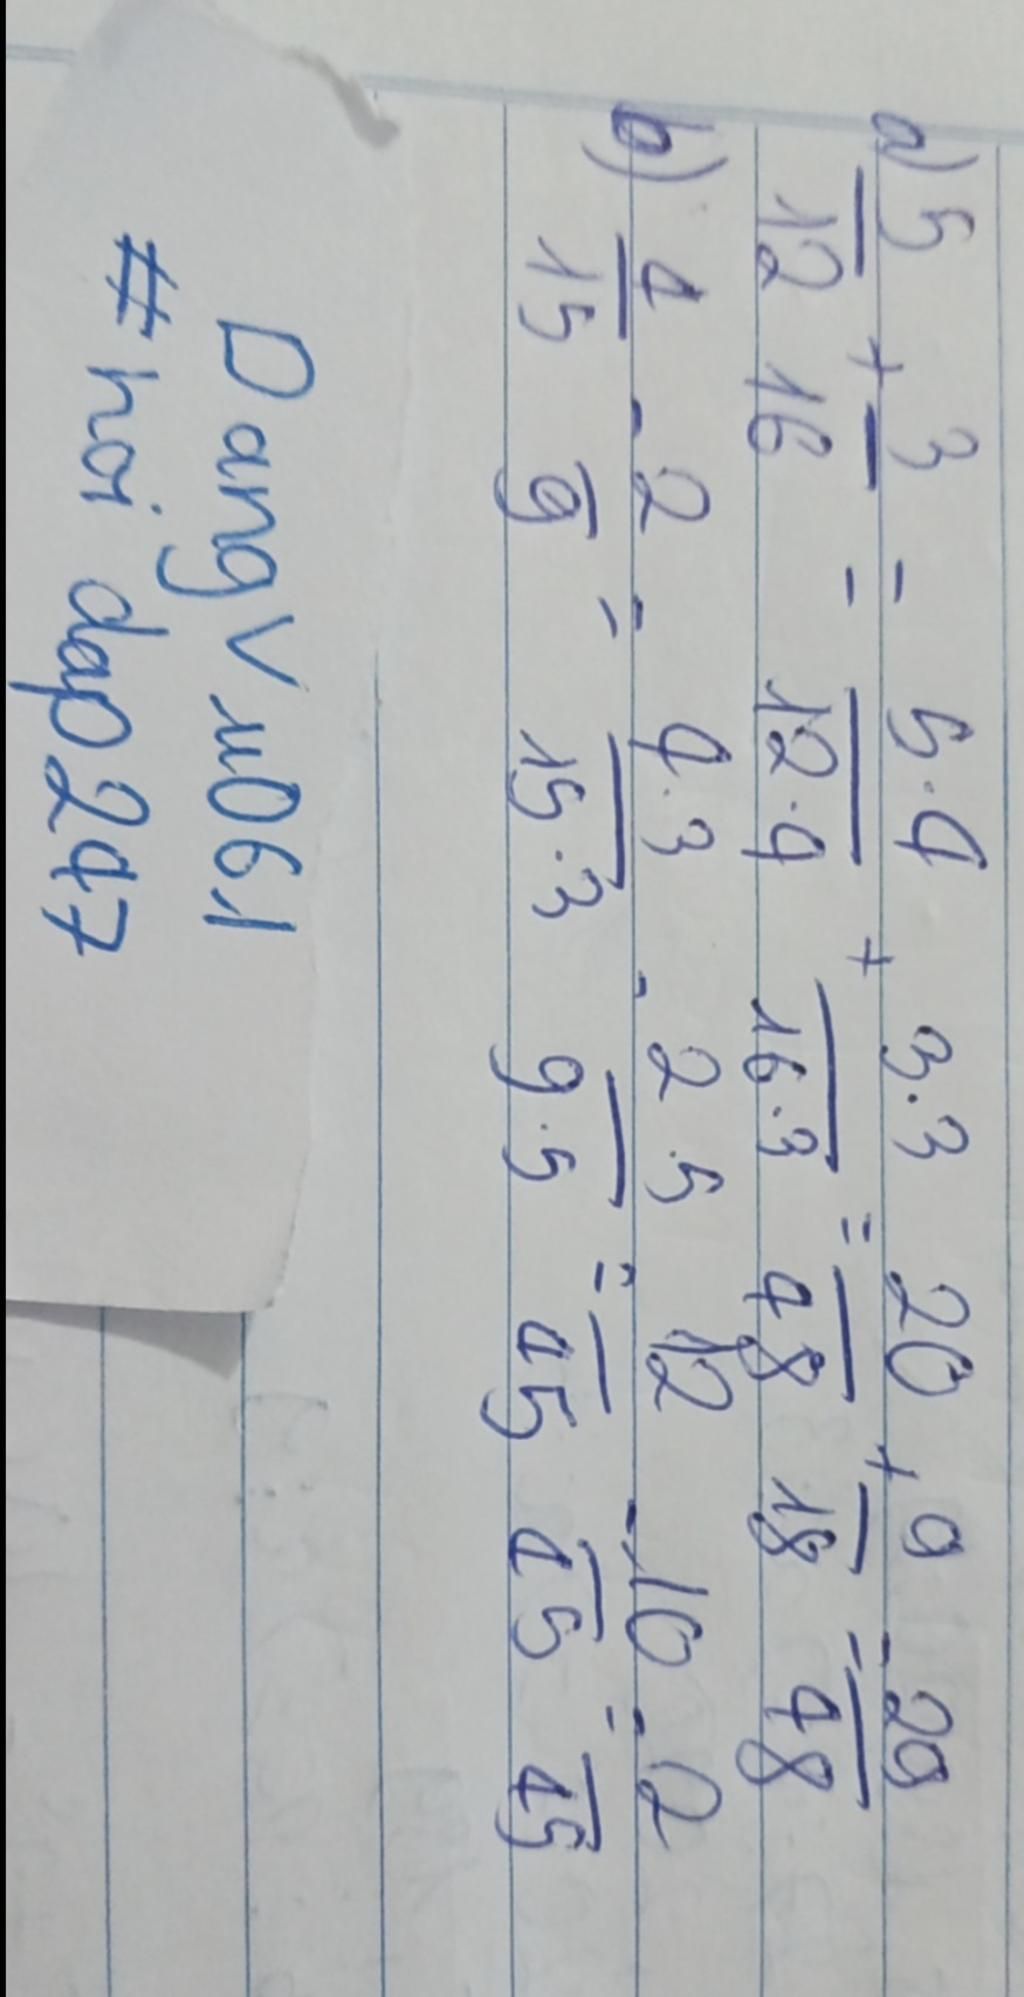 a) 5/12 + 3/16 = 5.4/12.4 + 3.3/16.3 = 20/48 + 9/18 = 29/48
b) 4/15 - 2/9 = 4.3/15.3 - 2.5/9.5 = 12/45 - 10/45 = 2/45
DangVu061
#hoi dap247